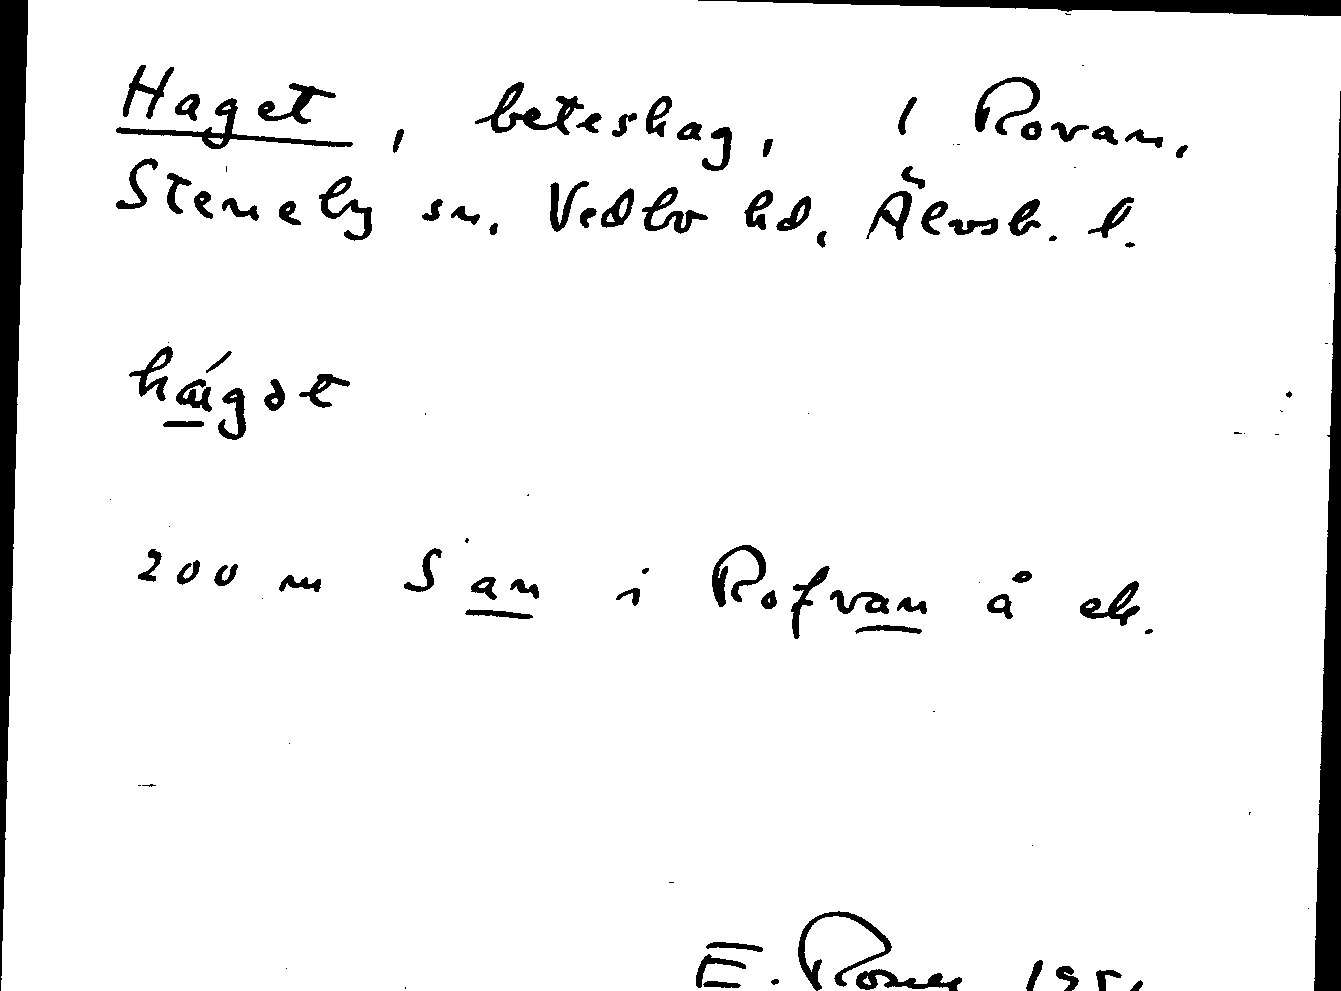 Haget, beteshag, 1 Rovan,
Steneby sn, Vedbo hd, Älvsb. l.
hágət
200 m S an i Rofvan å ek.
E.